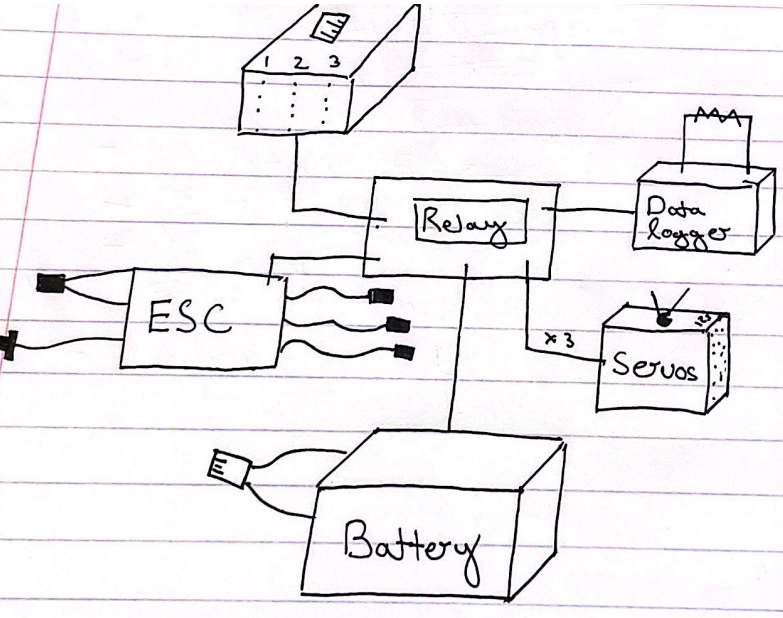 1 2 3
Relay
Data
logger
ESC
×3
123
Servos
Battery